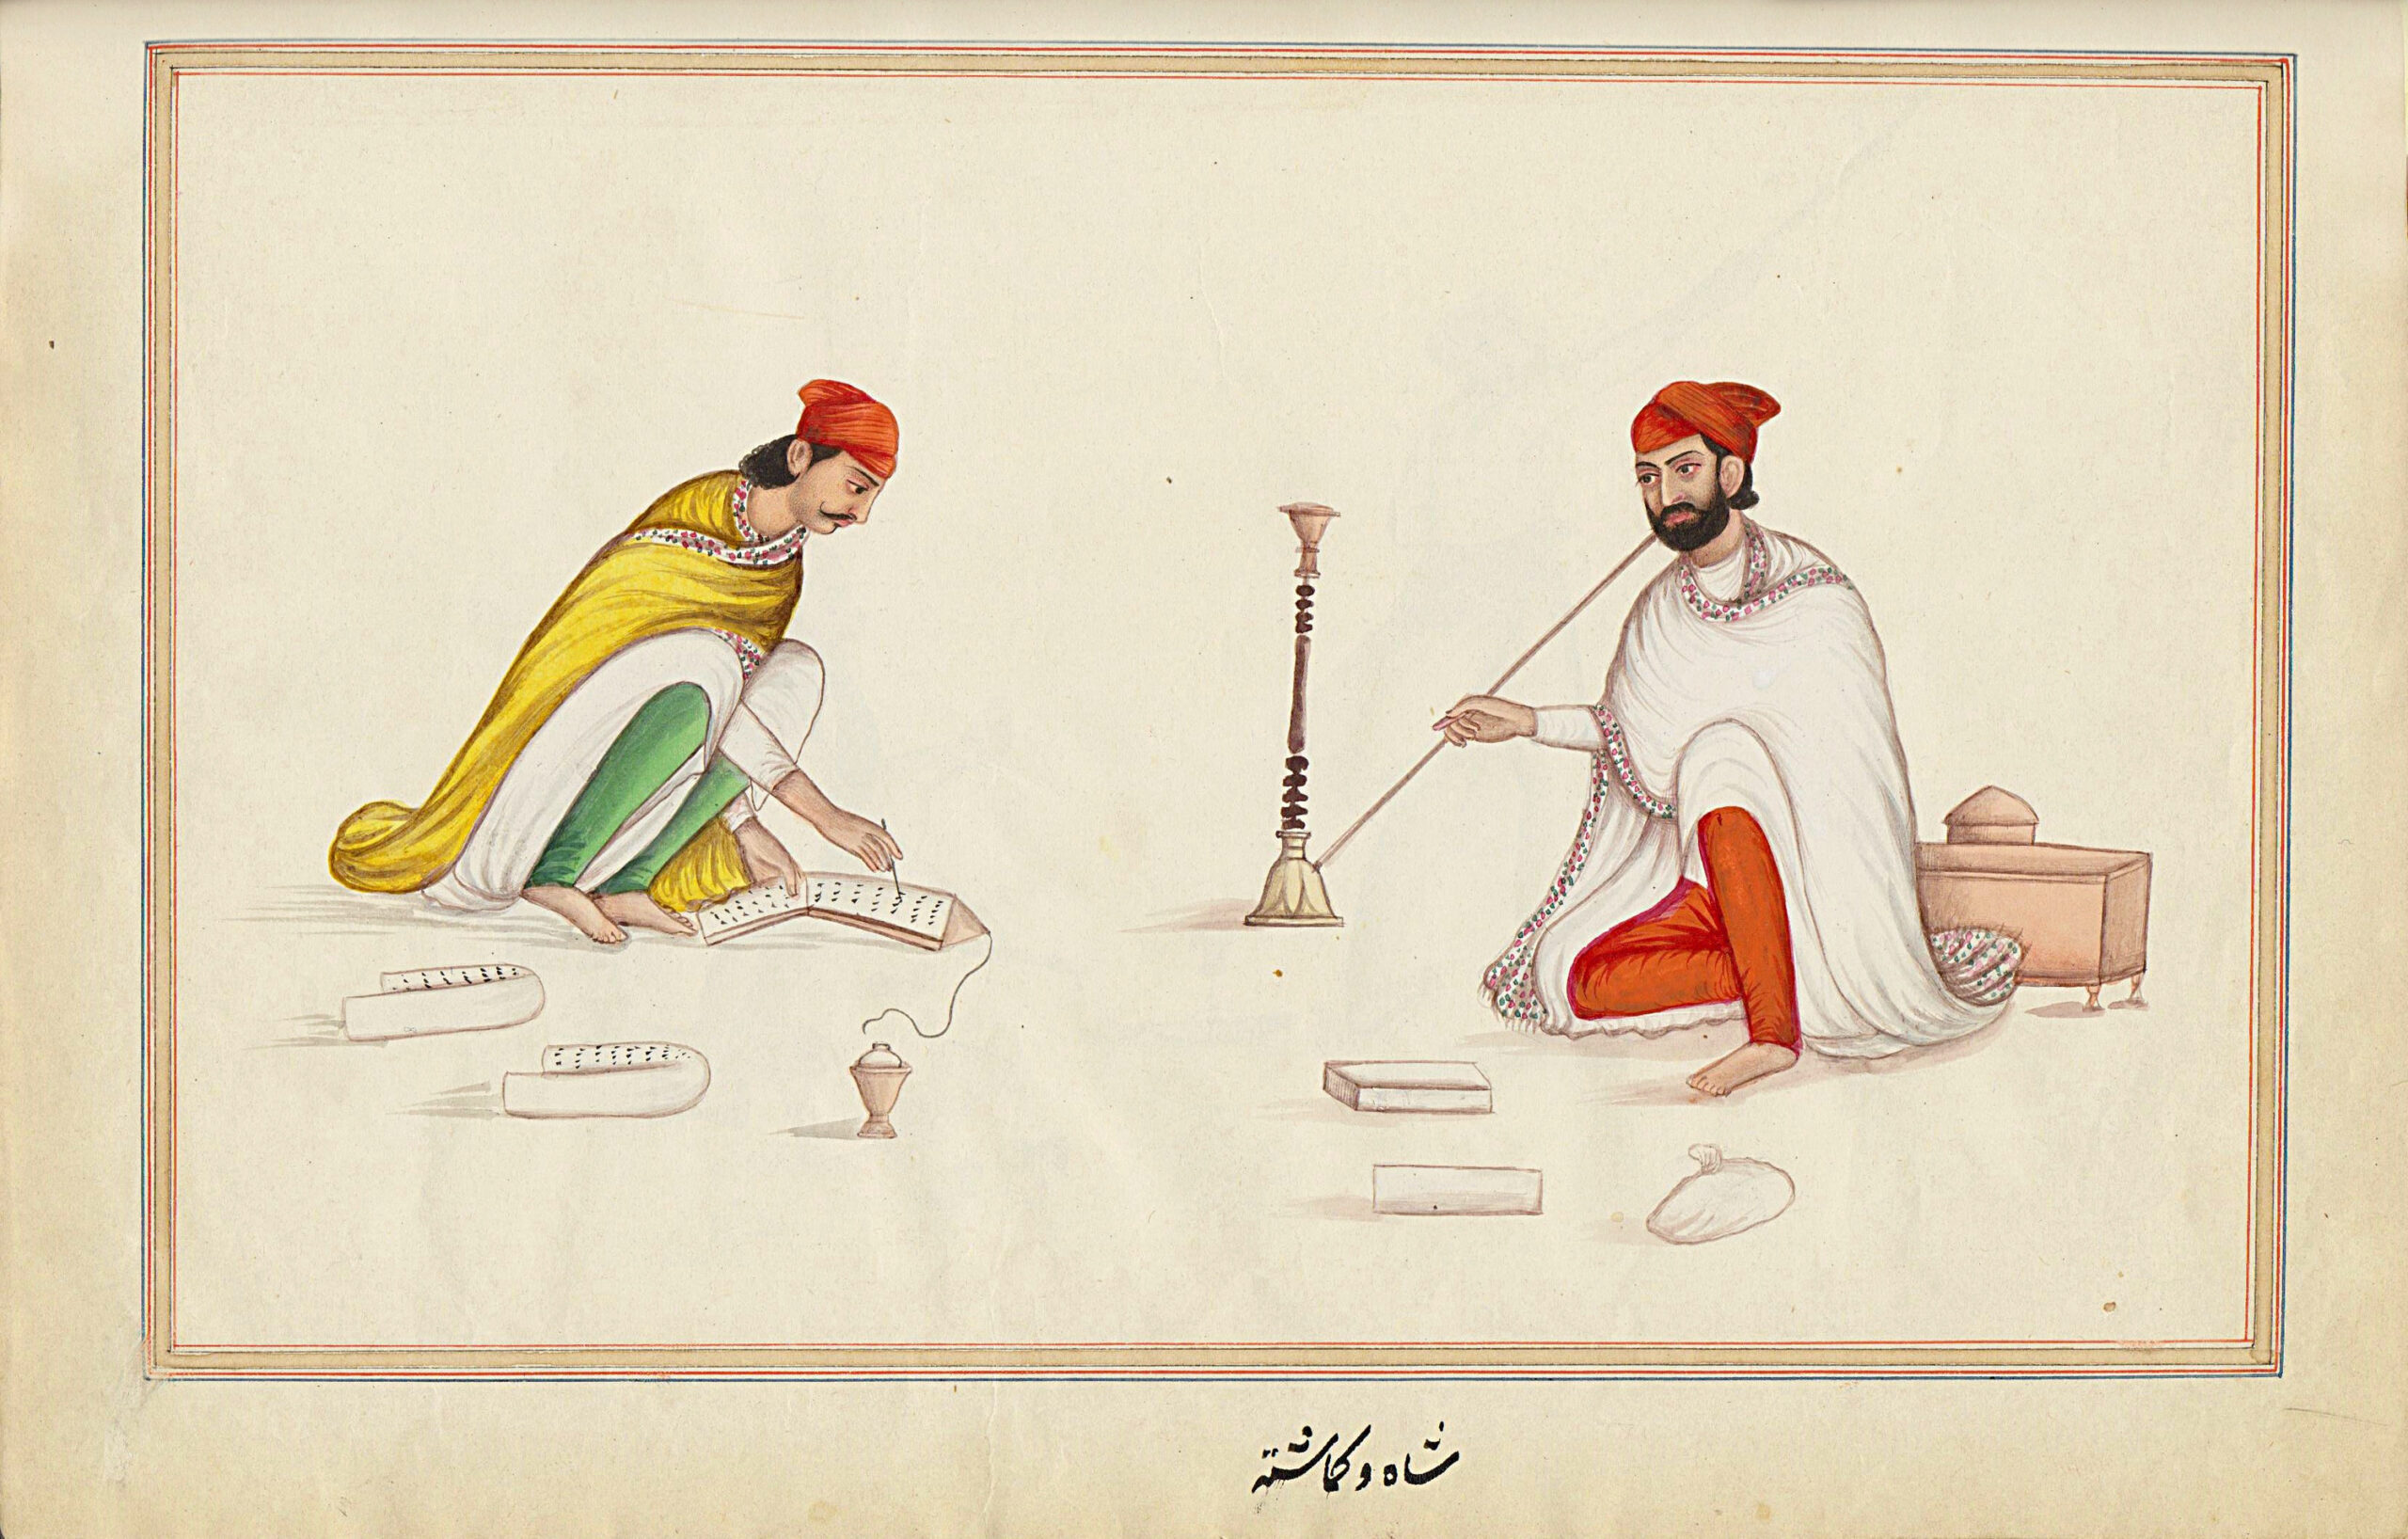 شاه و کماشته